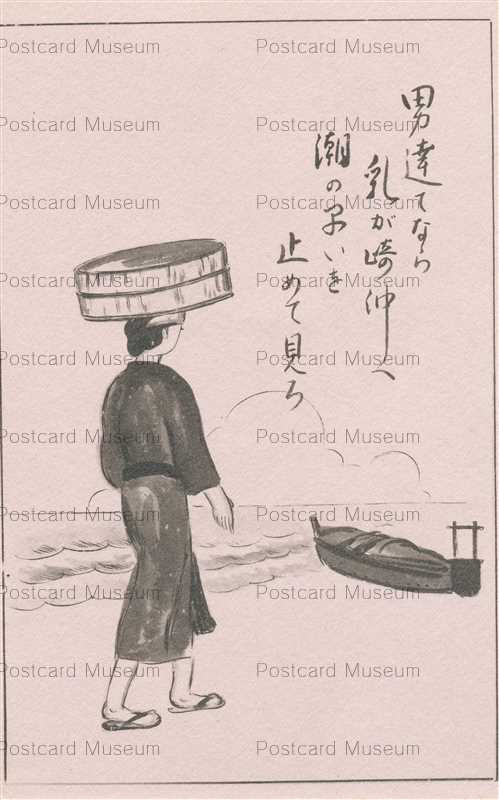 男達てなら
乳が崎沖へ
潮の早いを
止めて見ろ
Postcard Museum Postcard Museum
Postcard Museum Postcard Museum
Postcard Museum Postcard Museum
Postcard Museum Postcard Museum
Postcard Museum Postcard Museum
Postcard Museum Postcard Museum
Postcard Museum Postcard Museum
Postcard Museum Postcard Museum
Postcard Museum Postcard Museum
Postcard Museum Postcard Museum